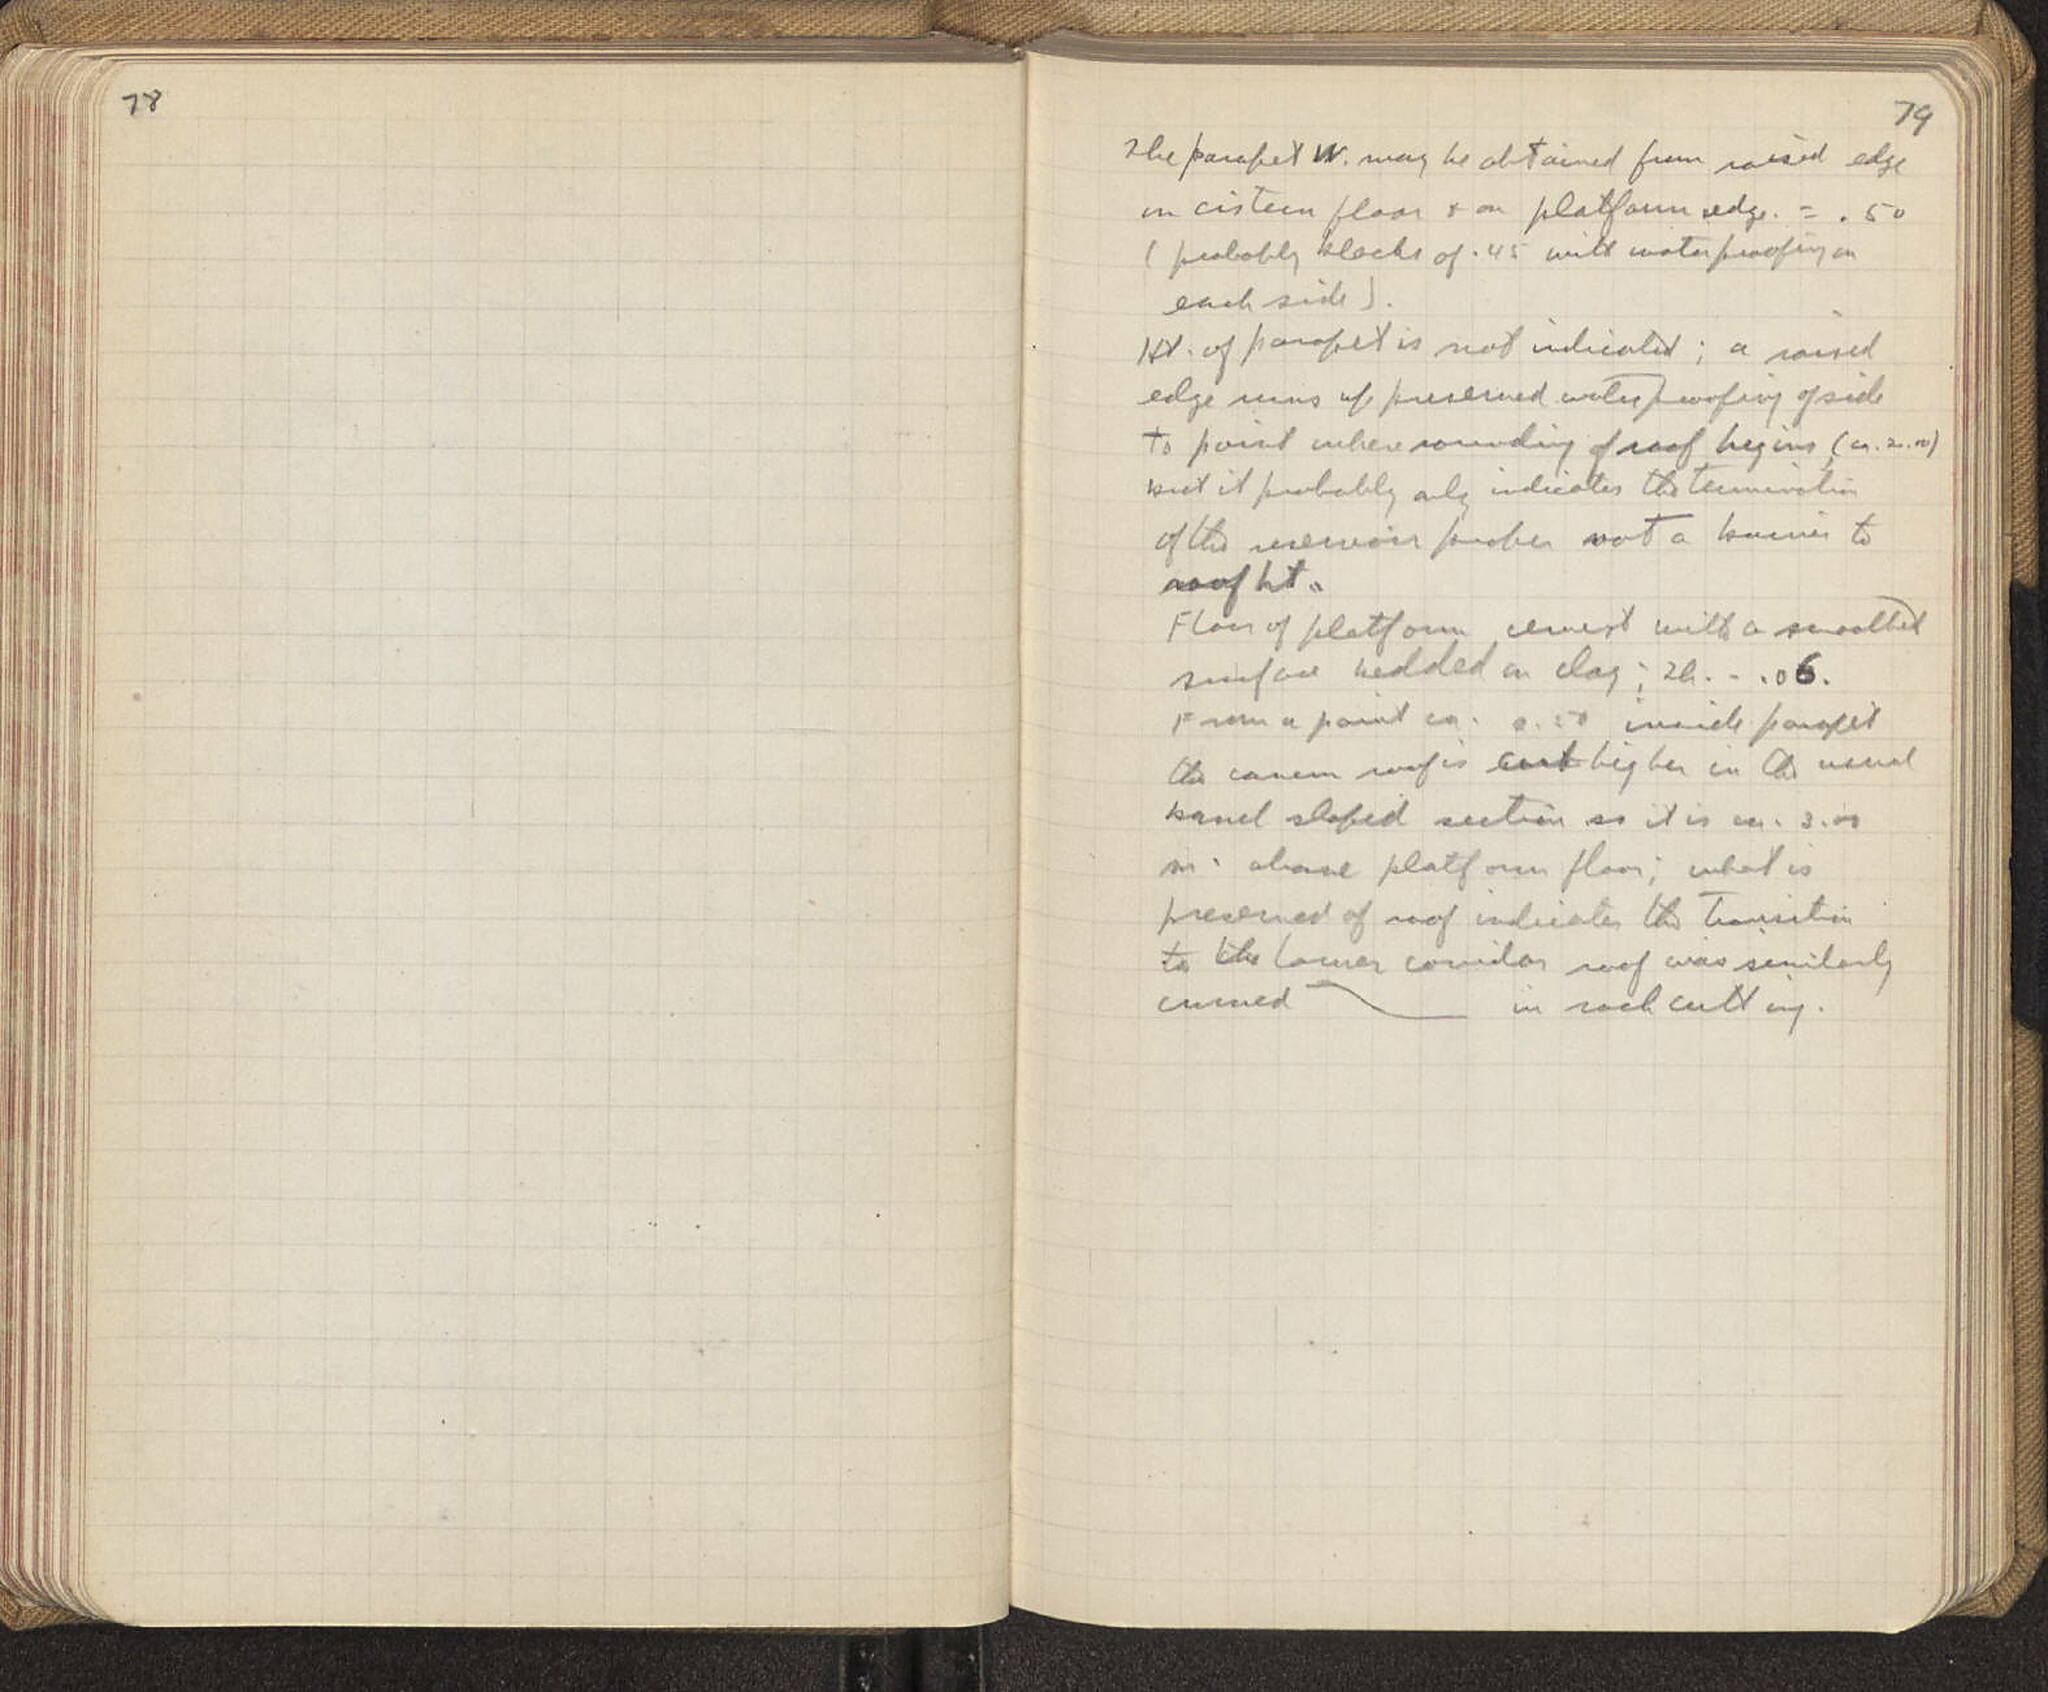 78
79
The parapet W. may be obtained from raised edge
on cistern floor & on platform edge. = .50
(probably blocks of .45 with waterproofing on
each side).
Ht. of parapet is not indicated; a raised
edge runs up preserved waterproofing of side
to point where rounding of roof begins (ca. 2.00)
but it probably only indicates the termination
of the reservoir proper not a barrier to
roof ht.
Floor of platform cement with a smoothed
surface bedded on clay; Th. - .06.
From a point ca. 0.50 inside parapet
the cavern roof is cut higher in the usual
barrel shaped section so it is ca. 3.00
m. above platform floor; what is
preserved of roof indicates the transition
to the lower corridor roof was similarly
curved in rock cutting.